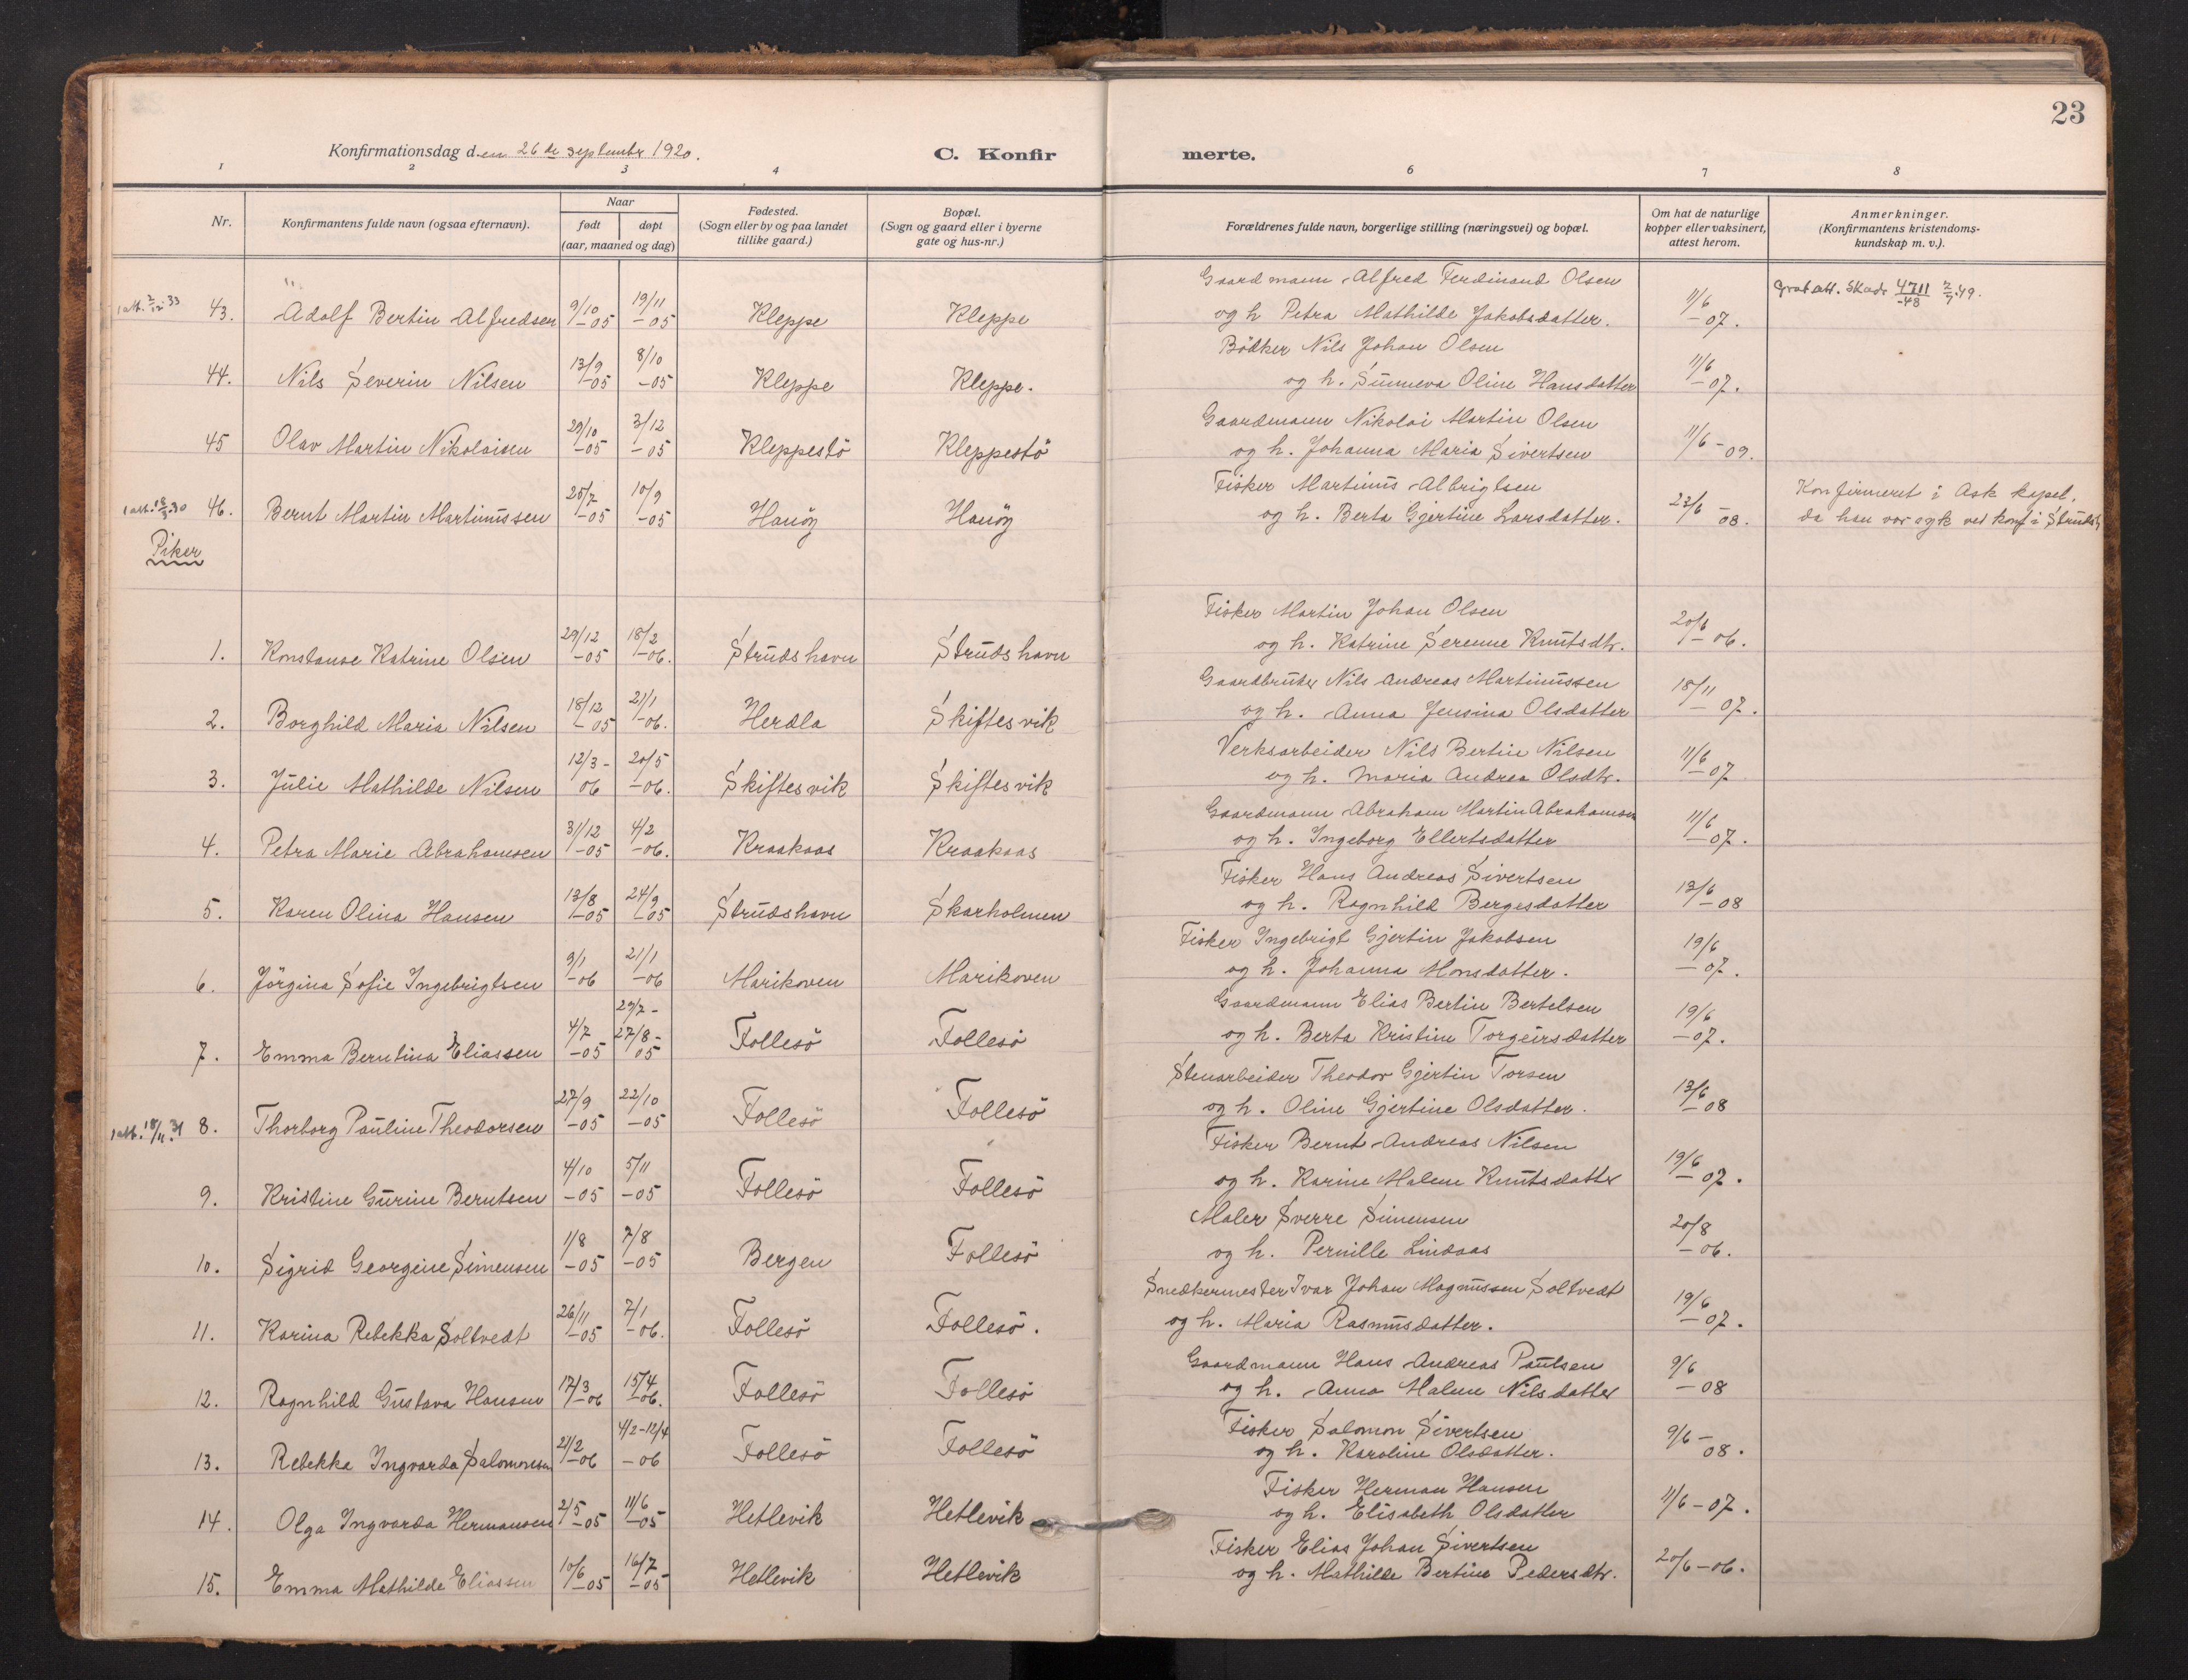 23
Konfirmationsdag den 26de september 1920.
C. Konfir merte.
1 2 3 4 6 7 8
Nr.
Konfirmantens fulde navn (ogsaa efternavn).
Naar
født døpt
(aar, maaned og dag)
Fødested.
(Sogn eller by og paa landet
tillike gaard.)
Bopæl.
(Sogn og gaard eller i byerne
gate og hus-nr.)
Forældrenes fulde navn, borgerlige stilling (næringsvei) og bopæl.
Om hat de naturlige
kopper eller vaksinert,
attest herom.
Anmerkninger.
(Konfirmantens kristendoms-
kundskap m. v.).
Gaardmann Alfred Ferdinand Olsen
1 att. 2/12 33 43. Adolf Bertin Alfredsen 9/10-05 19/11-05 Kleppe Kleppe og h Petra Mathilde Jakobsdatter. 11/6-07. Grat att. Skade 4711/-48 2/7.49.
Bödker Nils Johan Olsen
44. Nils Severin Nilsen 13/9-05 8/10-05 Kleppe Kleppe. og h. Sunneva Oline Hansdatter 11/6-07.
Gaardmann Nikolai Martin Olsen
45 Olav Martin Nikolaisen 29/10-05 3/12-05 Kleppestö Kleppestö og h. Johanna Maria Sivertsen 11/6-09.
Fisker Martinus Albrigtsen Konfirmeret i Ask kapel,
1 att. 18/3.30 46. Bernt Martin Martinussen 25/7-05 10/9-05 Hanöy Hanöy og h. Berta Gjertine Larsdatter. 23/6-08. da han var syk ved konf i Strudsh
Piker
Fisker Martin Johan Olsen
1. Konstanse Katrine Olsen 29/12-05 18/2-06. Strudshavn Strudshavn og h. Katrine Serenne Knutsdtr. 20/6-06.
Gaardbruker Nils Andreas Martinussen
2. Borghild Maria Nilsen 18/12-05 21/1-06. Herdla Skiftesvik og h. Anna Jensina Olsdatter 18/11-07.
Verksarbeider Nils Bertin Nilsen
3. Julie Mathilde Nilsen 12/3-06 20/5-06. Skiftesvik Skiftesvik og h. Maria Andrea Olsdtr. 11/6-07
Gaardmann Abraham Martin Abrahamsen
4. Petra Marie Abrahamsen 31/12-05 4/2-06. Kraakaas Kraakaas og h. Ingeborg Ellertsdatter 11/6-07.
Fisker Hans Andreas Sivertsen
5. Karen Olina Hansen 13/8-05 24/9-05 Strudshavn Skarholmen og h. Ragnhild Bergesdatter 13/6-08
Fisker Ingebrigt Gjertin Jakobsen
6. Jörgina Sofie Ingebrigtsen 9/1-06 21/1-06 Marikoven Marikoven og h. Johanna Monsdatter. 19/6-07.
Gaardmann Elias Bertin Bertelsen
7. Emma Berntina Eliassen 4/7-05 29/7-27/8-05 Follesö Follesö og h. Berta Kristine Torgeirsdatter 19/6-07.
Stenarbeider Theodor Gjertin Torsen
1 att. 18/11.31 8. Thorborg Pauline Theodorsen 27/9-05 22/10-05 Follesö Follesö og h. Oline Gjertine Olsdatter. 13/6-08
Fisker Bernt Andreas Nilsen
9. Kristine Gurine Berntsen 4/10-05 5/11-05 Follesö Follesö og h. Karine Malene Knutsdatter 19/6-07.
Maler Sverre Simensen
10. Sigrid Georgine Simensen 1/8-05 7/8-05 Bergen Follesö og h. Pernille Lindaas 20/8-06.
Snedkermester Ivar Johan Magnussen Soltvedt
11. Karina Rebekka Soltvedt 26/11-05 7/1-06. Follesö Follesö. og h. Maria Rasmusdatter. 19/6-07.
Gaardmann Hans Andreas Paulsen
12. Ragnhild Gustava Hansen 17/3-06 15/4-06. Follesö Follesö og h. Anna Malene Nilsdatter 9/6-08
Fisker Salomon Sivertsen
13. Rebekka Ingvarda Salomonsen 21/2-06 4/2-12/4-06 Follesö Follesö og h. Karoline Olsdatter. 9/6-08.
Fisker Herman Hansen
14. Olga Ingvarda Hermansen 2/5-05 11/6-05 Hetlevik Hetlevik og h. Elisabeth Olsdatter 11/6-07.
Fisker Elias Johan Sivertsen
15. Emma Mathilde Eliassen 10/6-05 16/7-05 Hetlevik Hetlevik og h. Mathilde Bertine Pedersdtr. 20/6-06.